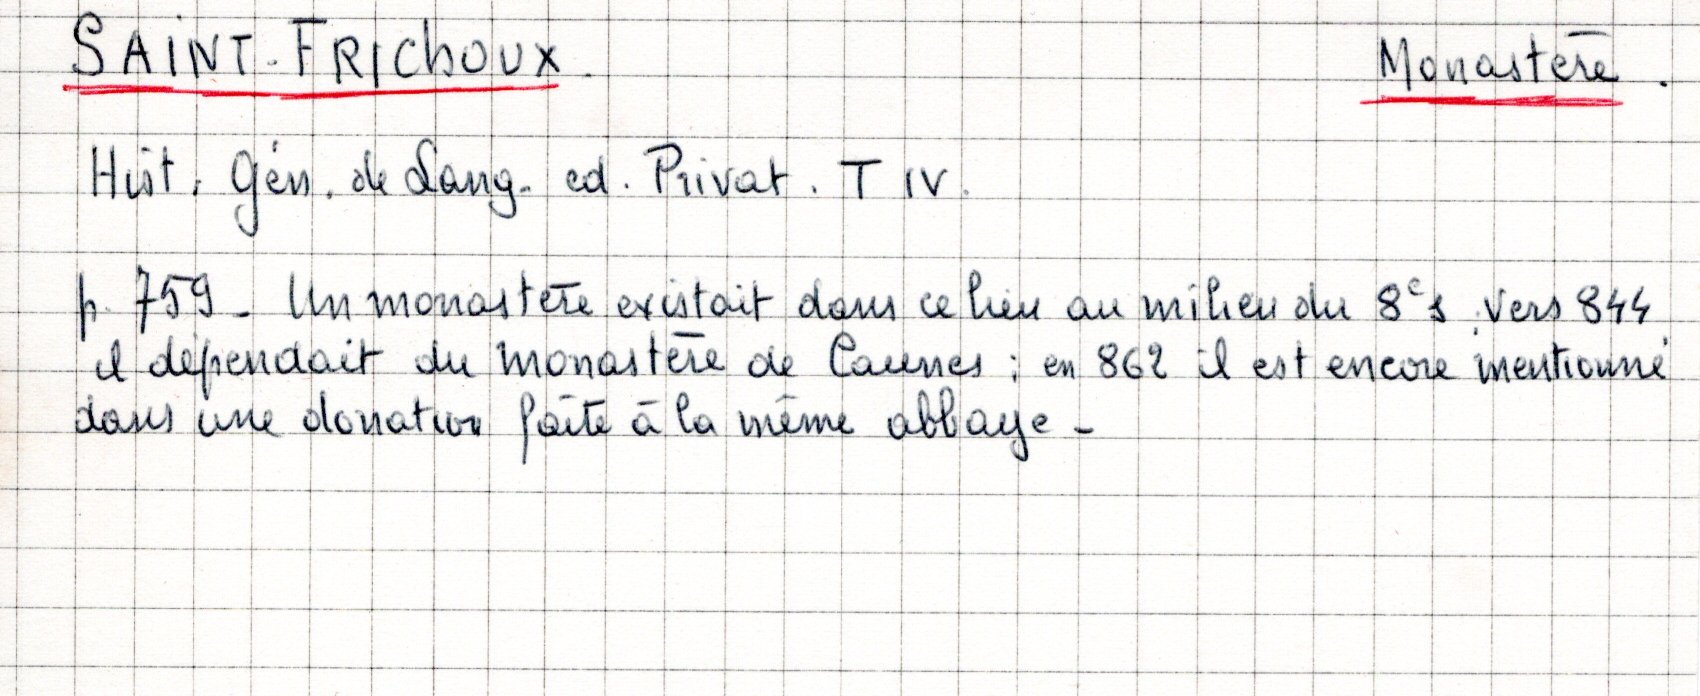 SAINT-FRICHOUX. Monastère.
Hist. Gén. de Lang. ed. Privat. T IV.
p. 759 - Un monastère existait dans ce lieu au milieu du 8e s. Vers 844
il dépendait du monastère de Caunes ; en 862 il est encore mentionné
dans une donation faite à la même abbaye -